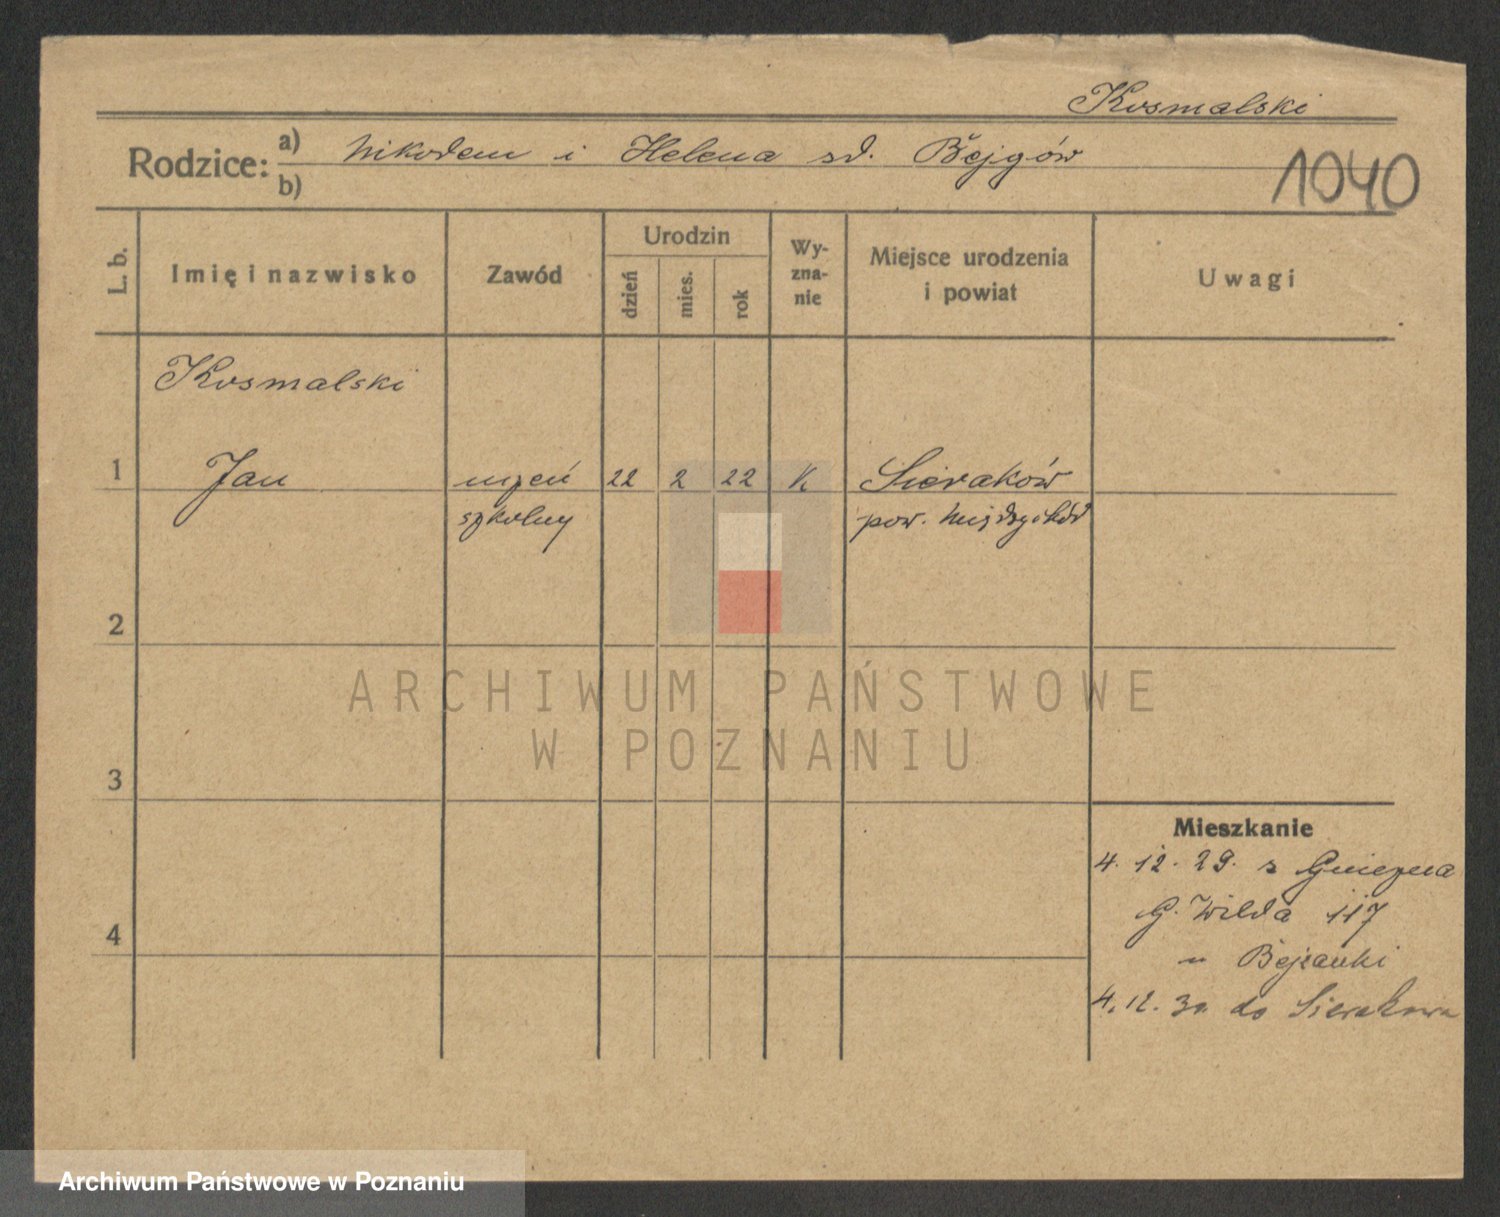 Kosmalski
Rodzice: a) Nikodem i Helena zd. Bejgów
b)
1040
L. b.
Imię i nazwisko
Zawód
Urodzin
dzień
mies.
rok
Wy-
zna-
nie
Miejsce urodzenia
i powiat
Uwagi
Kosmalski
1 Jan uczeń 22 2 22 K Sieraków
szkolny pow. Międzychód
2
3
4
ARCHIWUM PAŃSTWOWE
W POZNANIU
Mieszkanie
4. 12. 29. z Gniezna
G. Wilda 117
u
4. 12. 30 do Sierakowa
Archiwum Państwowe w Poznaniu